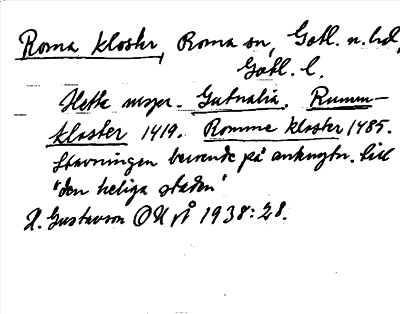 Roma kloster, Roma sn, Gotl. n. hd,
Gotl. l.
Hette urspr. Gutnalia. Rumm-
kloster 1419. Romme kloster 1485.
Stavningen beroende på anknytn. till
"den heliga staden"
H. Gustavson OUÅ 1938:28.